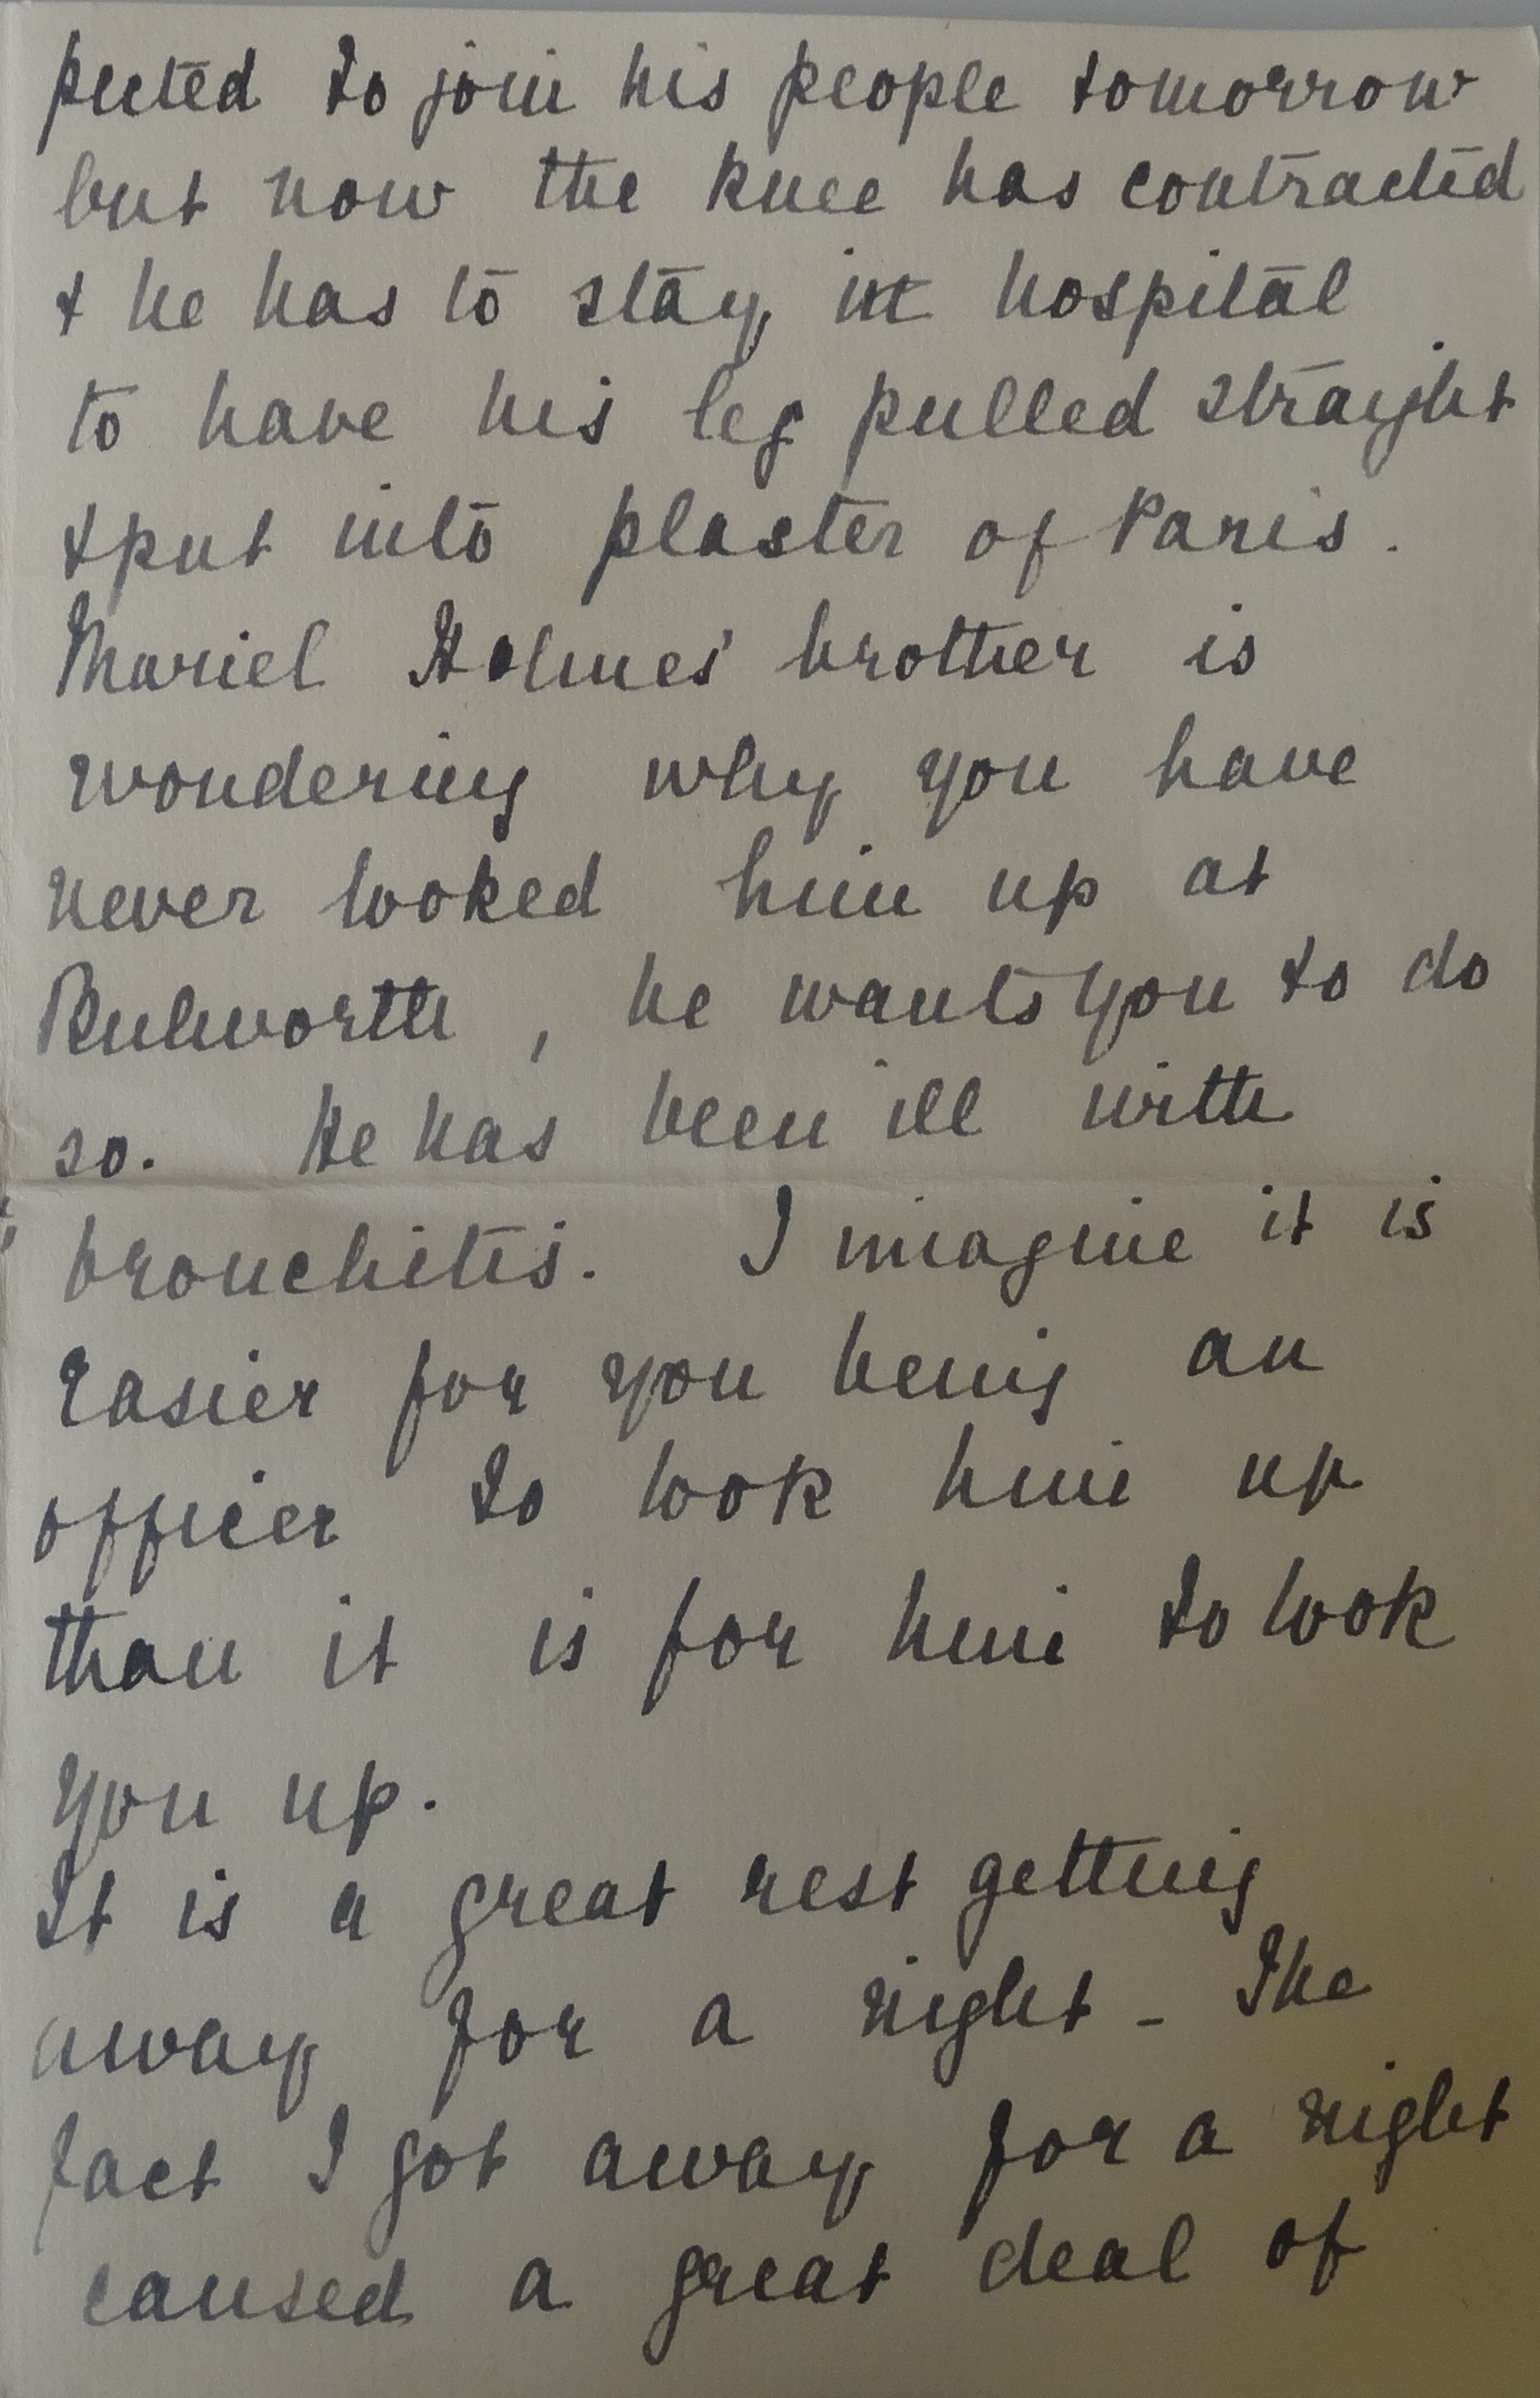 pected to join his people tomorrow
but now the knee has contracted
& he has to stay in hospital
to have his leg pulled straight
& put into plaster of Paris.
Muriel Holmes' brother is
wondering why you have
never looked him up at
he wants you to do
so. He has been ill with
bronchitis. I imagine it is
easier for you being an
officer to look him up
than it is for him to look
you up.
It is a great rest getting
away for a night - The
fact I got away for a night
caused a great deal of